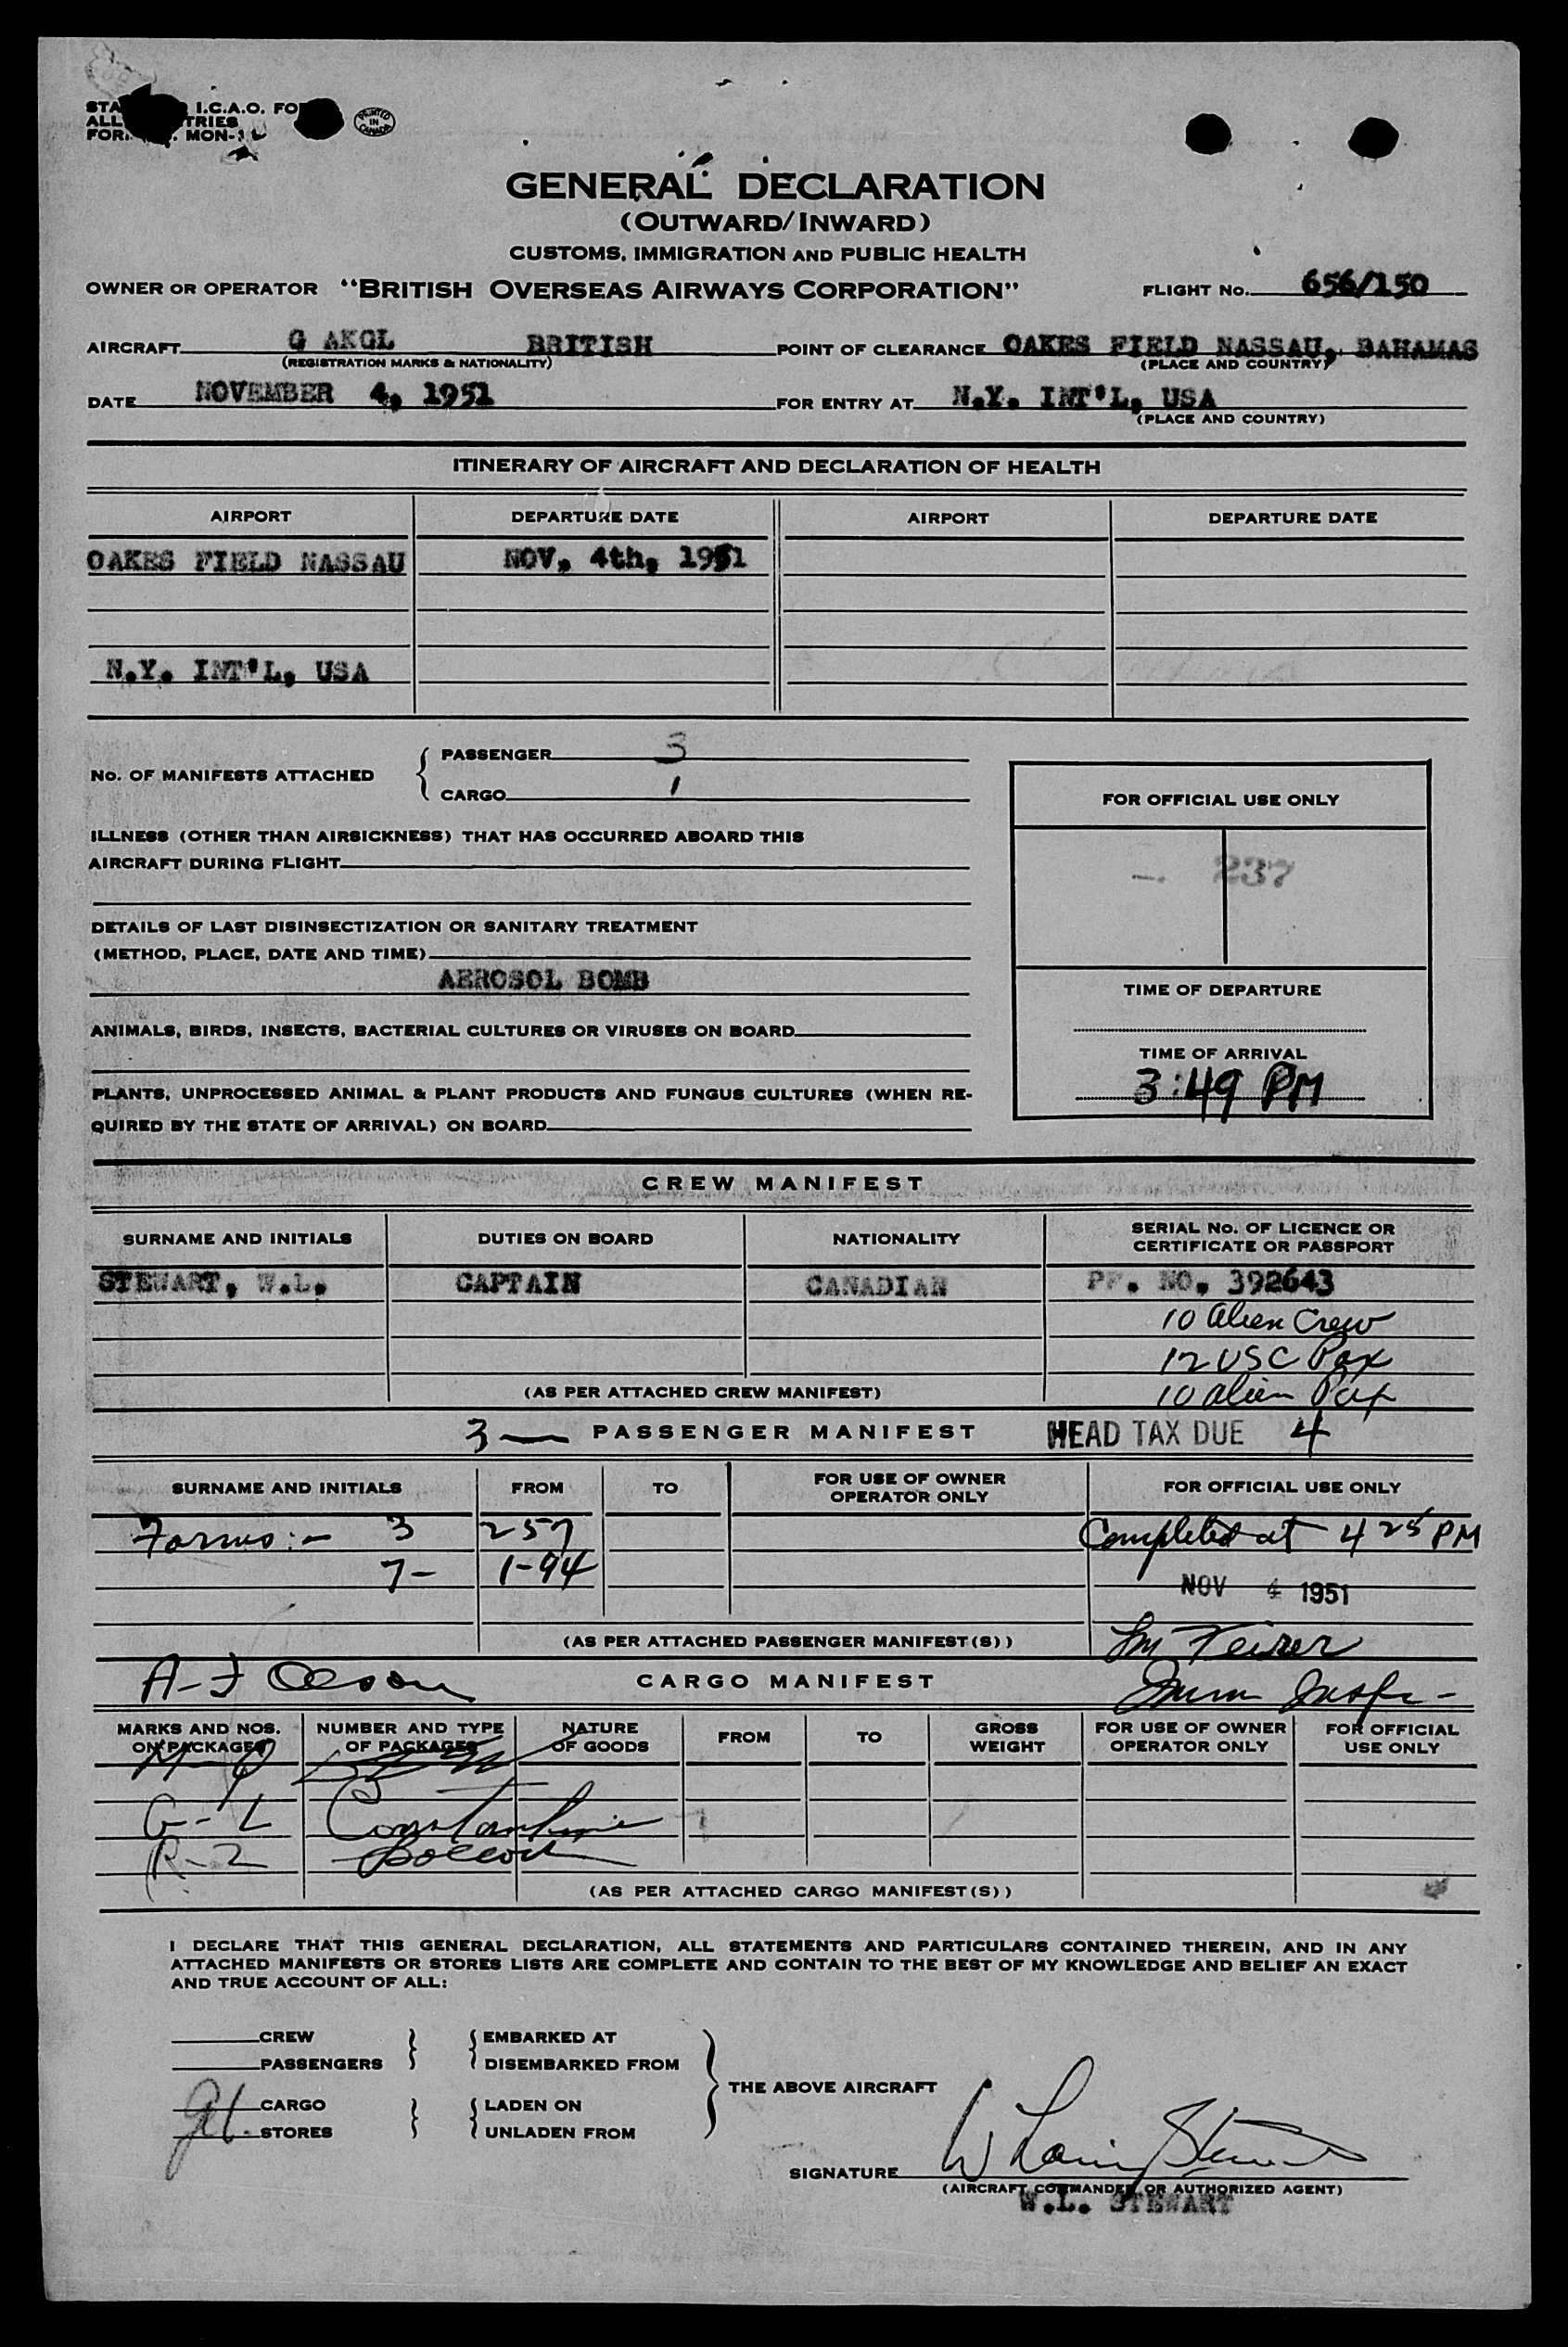 I.C.A.O.
MON-
PRINTED IN CANADA
GENERAL DECLARATION
(OUTWARD/INWARD)
CUSTOMS, IMMIGRATION AND PUBLIC HEALTH
OWNER OR OPERATOR "BRITISH OVERSEAS AIRWAYS CORPORATION" FLIGHT No. 656/150
AIRCRAFT G AKGL BRITISH POINT OF CLEARANCE OAKES FIELD NASSAU, BAHAMAS
(REGISTRATION MARKS & NATIONALITY) (PLACE AND COUNTRY)
DATE NOVEMBER 4, 1951 FOR ENTRY AT N.Y. INT'L, USA
(PLACE AND COUNTRY)
ITINERARY OF AIRCRAFT AND DECLARATION OF HEALTH
AIRPORT DEPARTURE DATE AIRPORT DEPARTURE DATE
OAKES FIELD NASSAU NOV, 4th, 1951
N.Y. INT'L, USA
PASSENGER 3
No. OF MANIFESTS ATTACHED
CARGO 1
FOR OFFICIAL USE ONLY
ILLNESS (OTHER THAN AIRSICKNESS) THAT HAS OCCURRED ABOARD THIS
AIRCRAFT DURING FLIGHT
237
DETAILS OF LAST DISINSECTIZATION OR SANITARY TREATMENT
(METHOD, PLACE, DATE AND TIME)
AEROSOL BOMB
TIME OF DEPARTURE
ANIMALS, BIRDS, INSECTS, BACTERIAL CULTURES OR VIRUSES ON BOARD
TIME OF ARRIVAL
3:49 PM
PLANTS, UNPROCESSED ANIMAL & PLANT PRODUCTS AND FUNGUS CULTURES (WHEN RE-
QUIRED BY THE STATE OF ARRIVAL) ON BOARD
CREW MANIFEST
SURNAME AND INITIALS DUTIES ON BOARD NATIONALITY SERIAL No. OF LICENCE OR
CERTIFICATE OR PASSPORT
STEWART, W.L. CAPTAIN CANADIAN PP. NO, 392643
10 alien Crew
12 USC Pax
(AS PER ATTACHED CREW MANIFEST) 10 alien Pax
3 — PASSENGER MANIFEST HEAD TAX DUE 4
SURNAME AND INITIALS FROM TO FOR USE OF OWNER
OPERATOR ONLY FOR OFFICIAL USE ONLY
Forms:- 3 257 Completed at 4 25 PM
7- I-94 NOV 4 1951
(AS PER ATTACHED PASSENGER MANIFEST(S))
CARGO MANIFEST Imm Insp-
MARKS AND NOS.
ON PACKAGES NUMBER AND TYPE
OF PACKAGES NATURE
OF GOODS FROM TO GROSS
WEIGHT FOR USE OF OWNER
OPERATOR ONLY FOR OFFICIAL
USE ONLY
G-L Constantine
R-Z
(AS PER ATTACHED CARGO MANIFEST(S))
I DECLARE THAT THIS GENERAL DECLARATION, ALL STATEMENTS AND PARTICULARS CONTAINED THEREIN, AND IN ANY
ATTACHED MANIFESTS OR STORES LISTS ARE COMPLETE AND CONTAIN TO THE BEST OF MY KNOWLEDGE AND BELIEF AN EXACT
AND TRUE ACCOUNT OF ALL:
CREW EMBARKED AT
PASSENGERS DISEMBARKED FROM
THE ABOVE AIRCRAFT
CARGO LADEN ON
STORES UNLADEN FROM
SIGNATURE
(AIRCRAFT COMMANDER OR AUTHORIZED AGENT)
W.L. STEWART